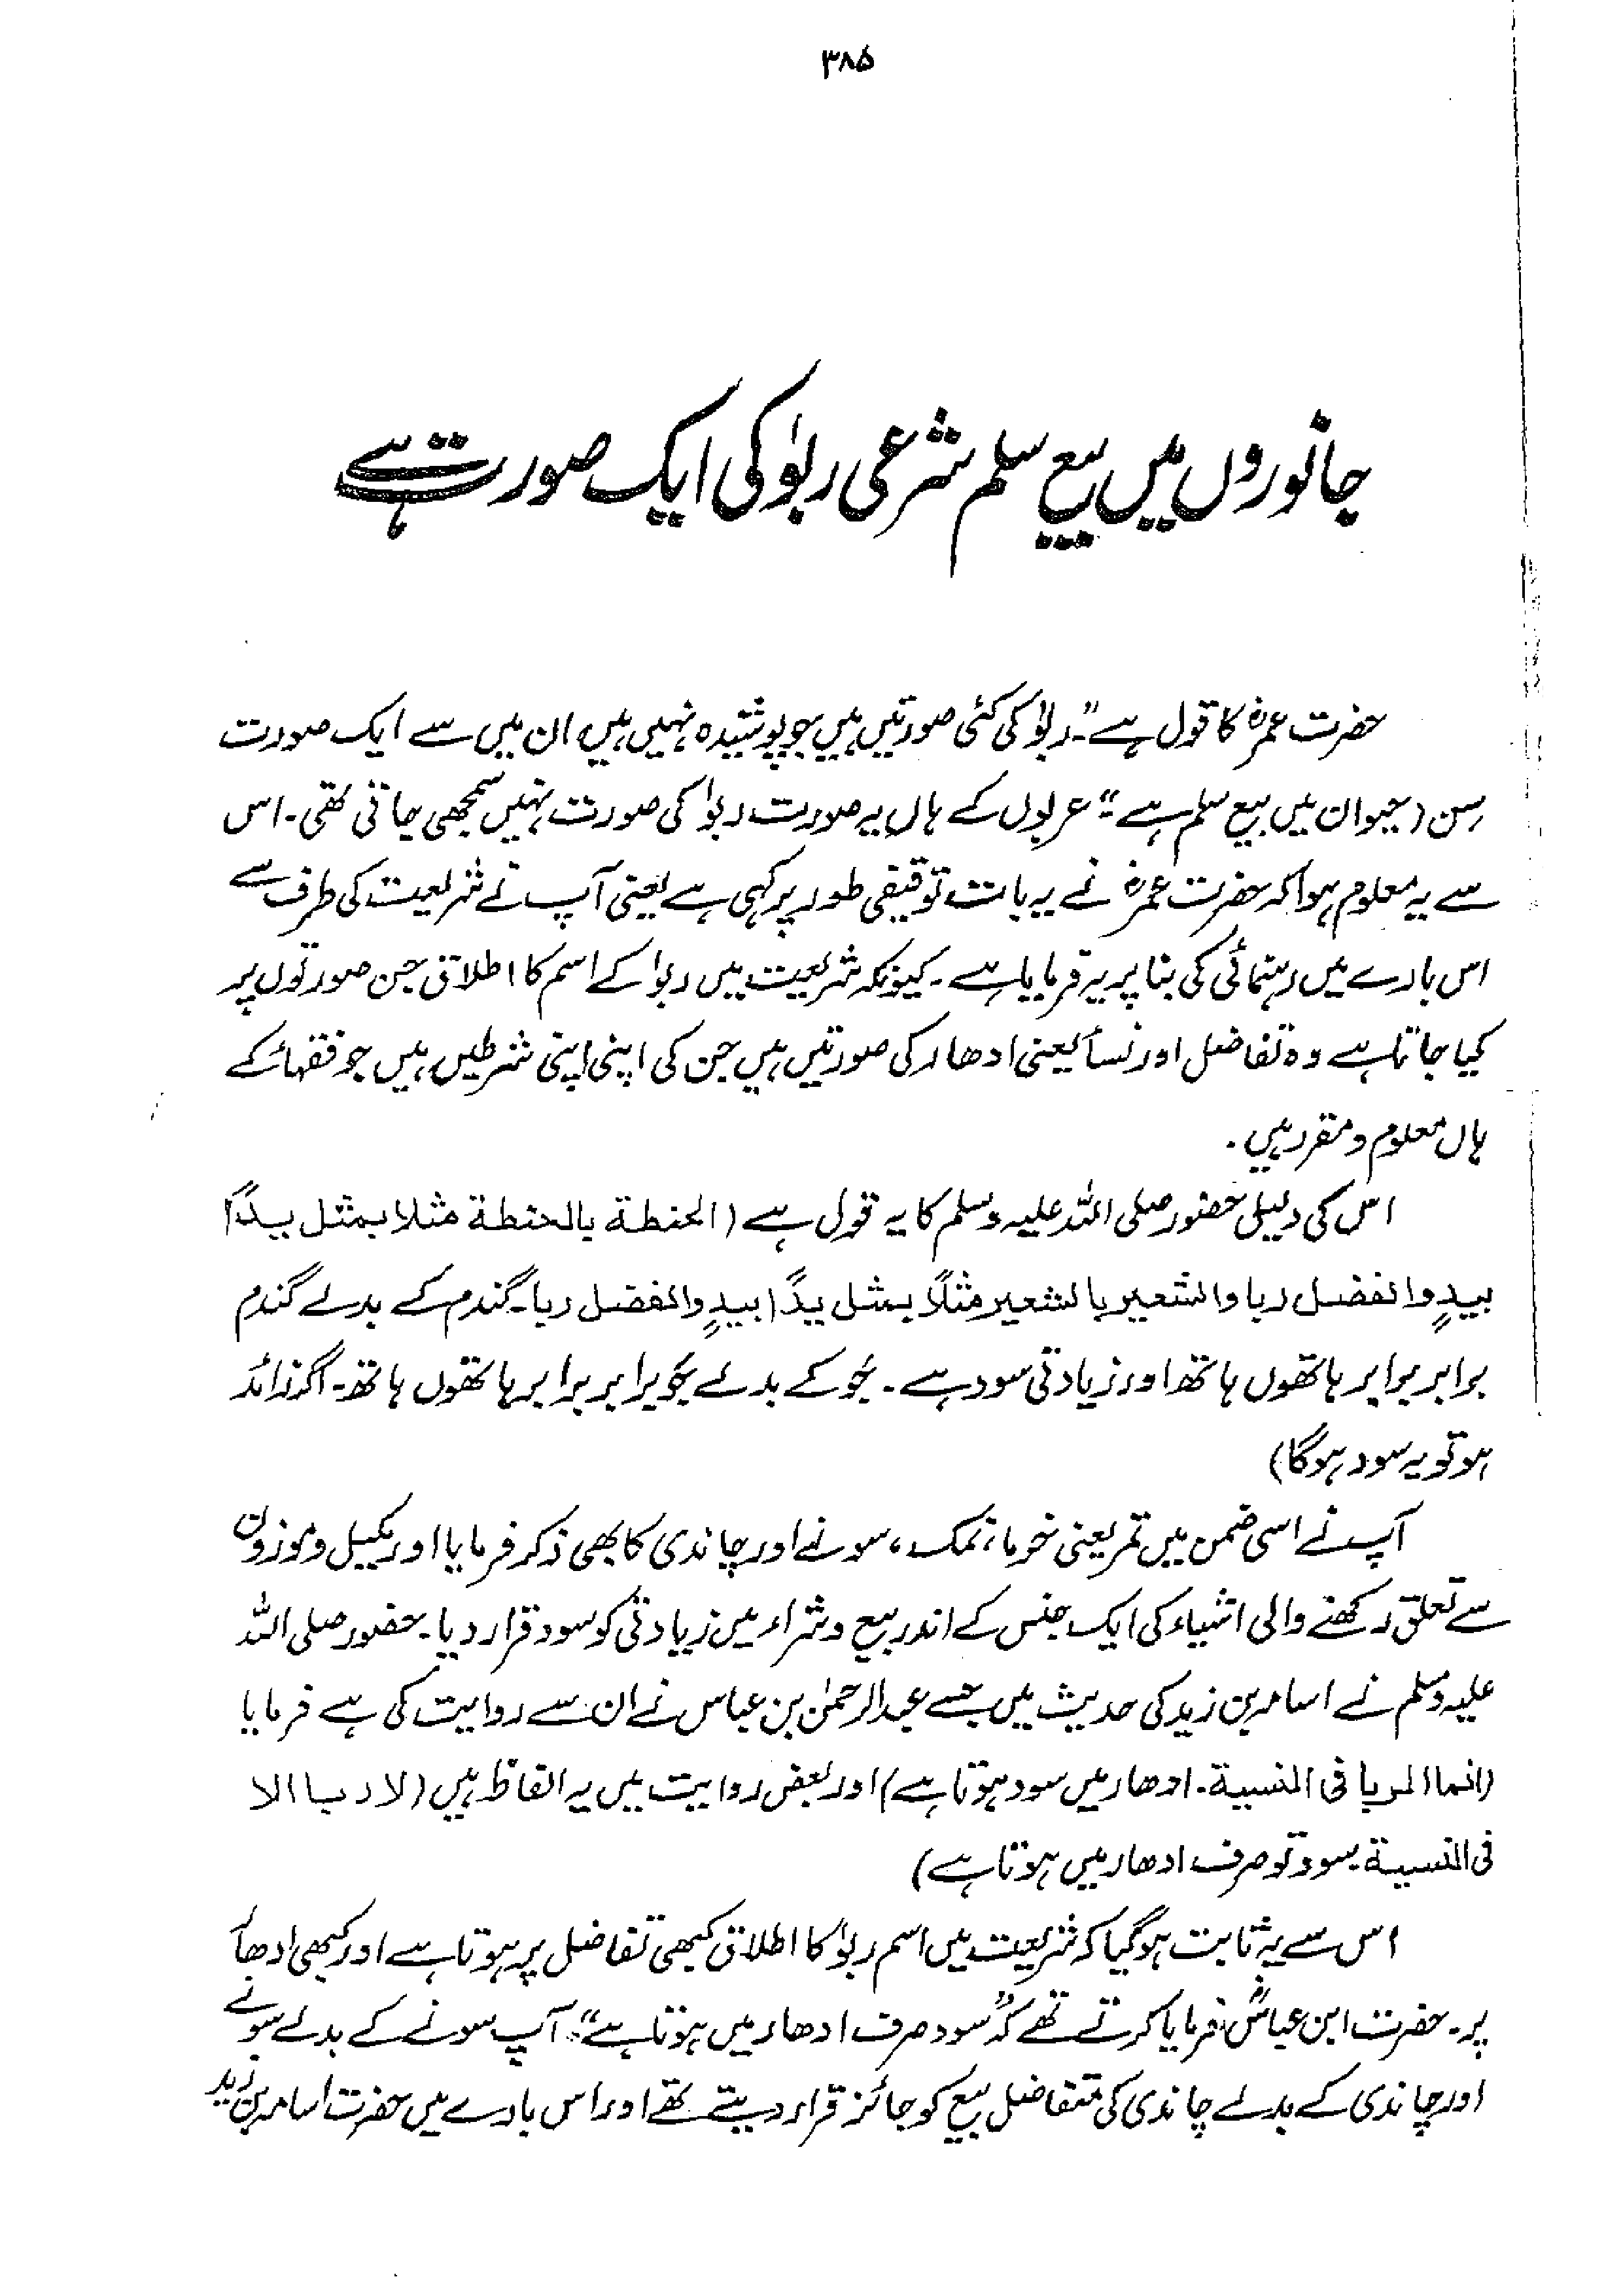 ۳۸۵
جانوروں میں بیع سلم شرعی ربوٰ کی ایک صورت ہے
حضرت عمرؓ کا قول ہے "۔ ربوٰ کی کئی صورتیں ہیں جو پوشیدہ نہیں ہیں ان میں سے ایک صورت
سِن (حیوان میں بیع سلم ہے" عربوں کے ہاں یہ صورت ربوٰ کی صورت نہیں سمجھی جاتی تھی۔ اس
سے یہ معلوم ہوا کہ حضرت عمرؓ نے یہ بات توقیفی طور پر کہی ہے یعنی آپ نے شریعت کی طرف سے
اس بارے میں رہنمائی کی بنا پر یہ فرمایا ہے۔ کیونکہ شریعت میں ربوا کے اسم کا اطلاق جن صورتوں پر
کیا جاتا ہے وہ تفاضل اور نسأ یعنی ادھار کی صورتیں ہیں جن کی اپنی اپنی شرطیں ہیں جو فقہائے کے
ہاں معلوم و مقرر ہیں۔
اس کی دلیل حضور صلی اللہ علیہ وسلم کا یہ قول ہے (الحنطة بالحنطة مثلا بمثل یدًا
بیدٍ والفضل ربا والشعیر بالشعیر مثلاً بمثل یدًا بیدٍ والفضل ربا۔ گندم کے بدلے گندم
برابر برابر ہاتھوں ہاتھ اور زیادتی سود ہے۔ جَو کے بدلے جَو برابر برابر ہاتھوں ہاتھ۔ اگر زائد
ہو تو یہ سود ہوگا)
آپ نے اسی ضمن میں تمر یعنی خرما، نمک، سونے اور چاندی کا بھی ذکر فرمایا اور مکیل و موزون
سے تعلق رکھنے والی اشیاء کی ایک جنس کے اندر بیع و شراء میں زیادتی کو سود قرار دیا۔ حضور صلی اللہ
علیہ وسلم نے اسامہ بن زید کی حدیث میں جسے عبدالرحمٰن بن عباس نے ان سے روایت کی ہے فرمایا
(انما الربا فی النسیة۔ ادھار میں سود ہوتا ہے) اور بعض روایت میں یہ الفاظ ہیں (لا ربا الا
فی النسیة سود تو صرف ادھار میں ہوتا ہے)
اس سے یہ ثابت ہوگیا کہ شریعت میں اسم ربوٰ کا اطلاق کبھی تفاضل پر ہوتا ہے اور کبھی ادھار
پر۔ حضرت ابن عباسؓ فرمایا کرتے تھے کہ "سود صرف ادھار میں ہوتا ہے"۔ آپ سونے کے بدلے سونے
اور چاندی کے بدلے چاندی کی متفاضل بیع کو جائز قرار دیتے تھے اور اس بارے میں حضرت اسامہ بن زید